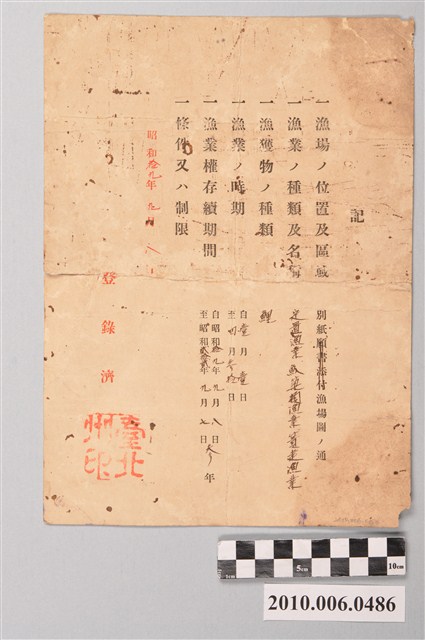 記
一漁場ノ位置及區域 別紙願書添付漁場圖ノ通
一漁業ノ種類及名稱 定置漁業
一漁獲物ノ種類 鯉
一漁業ノ時期 自壹月壹日
至 月 日
一漁業權存續期間 自昭和拾九年九月八日
至昭和 年九月七日 年
一條件又ハ制限
昭和拾九年九月八日
登錄濟
臺北州印
5cm
10cm
2010.006.0486